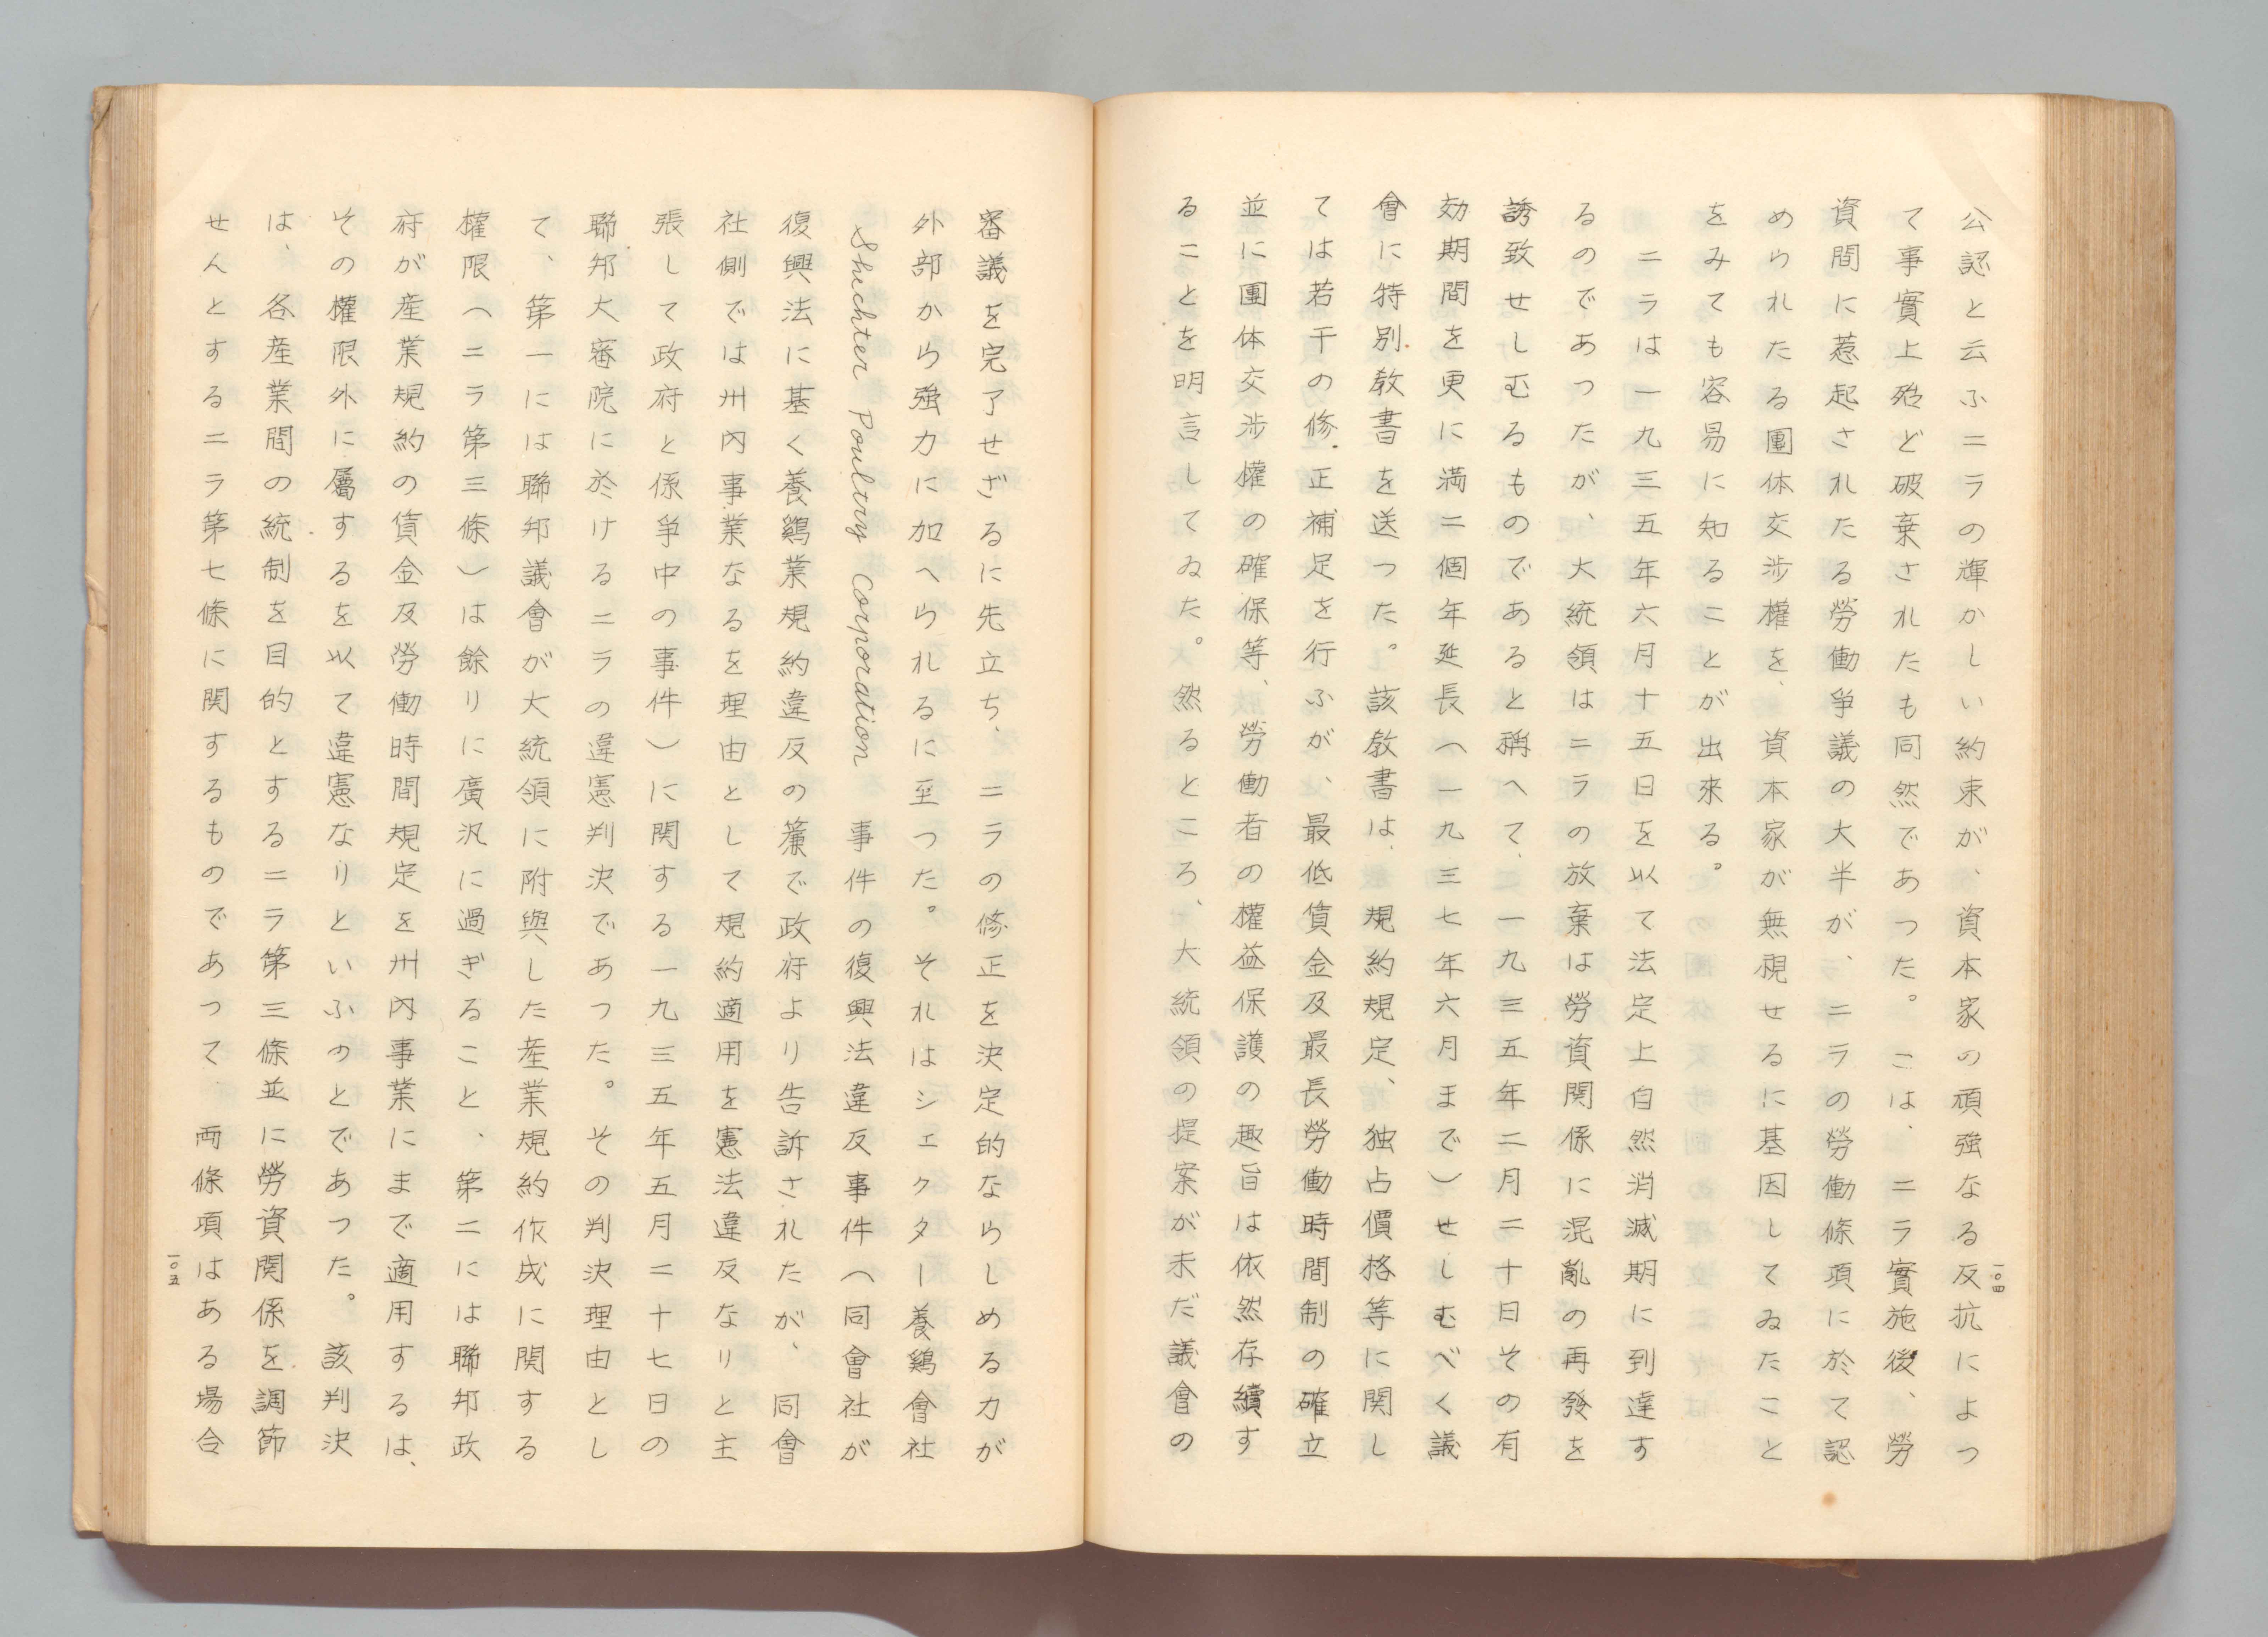 公認と云ふニラの輝かしい約束が、資本家の頑強なる反抗によつ
て事實上殆ど破棄されたも同然であつた。こは、ニラ實施後、勞
資間に惹起されたる勞働爭議の大半が、ニラの勞働條項に於て認
められたる團体交渉權を、資本家が無視せるに基因してゐたこと
をみても容易に知ることが出來る。
ニラは一九三五年六月十五日を以て法定上自然消滅期に到達す
るのであつたが、大統領はニラの放棄は勞資関係に混亂の再發を
誘致せしむるものであると稱へて、一九三五年二月二十日その有
効期間を更に満二個年延長（一九三七年六月まで）せしむべく議
會に特別教書を送つた。該教書は、規約規定、独占價格等に関し
ては若干の修正補足を行ふが、最低賃金及最長勞働時間制の確立
並に團体交渉權の確保等、勞働者の權益保護の趣旨は依然存續す
ることを明言してゐた。然るところ、大統領の提案が未だ議會の
一〇四
審議を完了せざるに先立ち、ニラの修正を決定的ならしめる力が
外部から強力に加へられるに至つた。それはシェクター養鷄會社
Shechter Poultry Corporation 事件の復興法違反事件（同會社が
復興法に基く養鷄業規約違反の簾で政府より告訴されたが、同會
社側では州內事業なるを理由として規約適用を憲法違反なりと主
張して政府と係爭中の事件）に関する一九三五年五月二十七日の
聯邦大審院に於けるニラの違憲判決であつた。その判決理由とし
て、第一には聯邦議會が大統領に附與した産業規約作成に関する
權限（ニラ第三條）は餘りに廣汎に過ぎること、第二には聯邦政
府が産業規約の賃金及勞働時間規定を州內事業にまで適用するは、
その權限外に屬するを以て違憲なりといふのとであつた。該判決
は、各産業間の統制を目的とするニラ第三條並に勞資関係を調節
せんとするニラ第七條に関するものであつて、両條項はある場合
一〇五